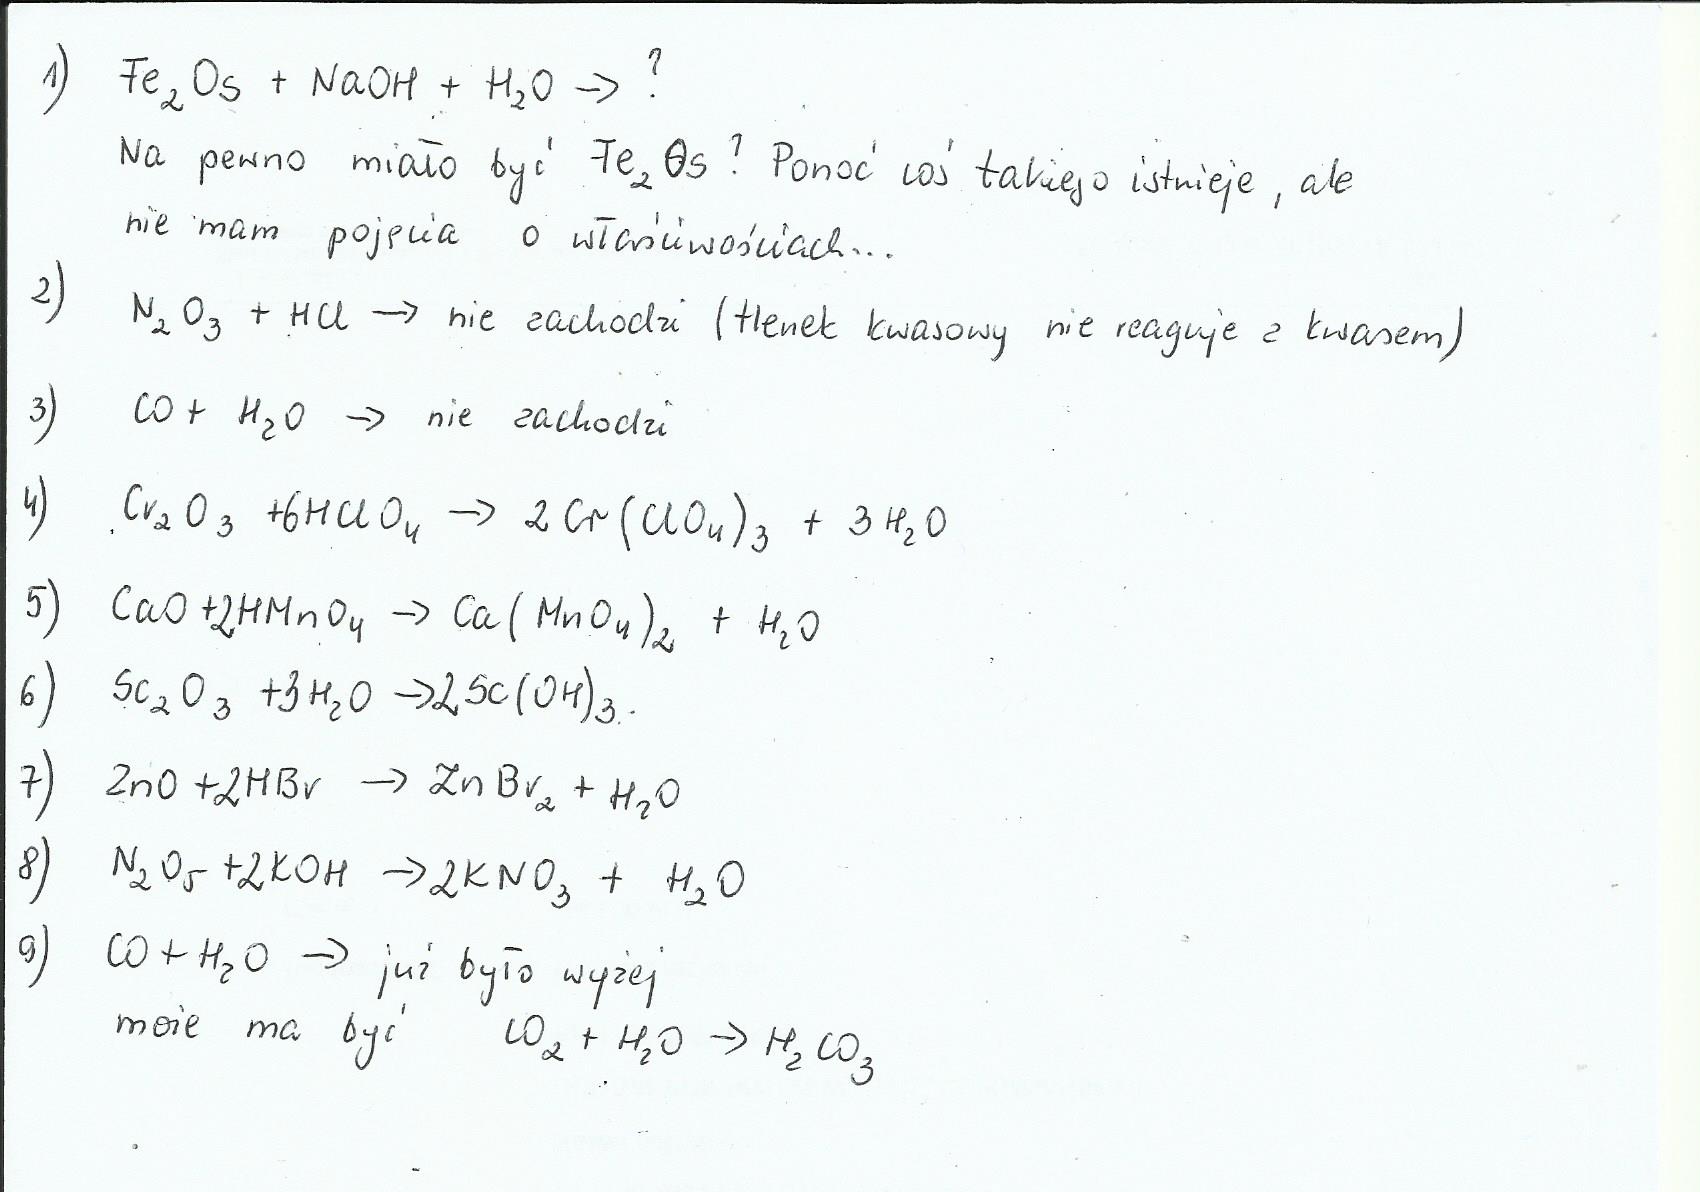 1) Fe₂Os + NaOH + H₂O → ?
Na pewno miało być Fe₂Os? Ponoć coś takiego istnieje, ale
nie mam pojęcia o właściwościach...
2) N₂O₃ + HCl → nie zachodzi (tlenek kwasowy nie reaguje z kwasem)
3) CO + H₂O → nie zachodzi
4) Cr₂O₃ + 6HClO₄ → 2Cr(ClO₄)₃ + 3H₂O
5) CaO + 2HMnO₄ → Ca(MnO₄)₂ + H₂O
6) Sc₂O₃ + 3H₂O → 2Sc(OH)₃
7) ZnO + 2HBr → ZnBr₂ + H₂O
8) N₂O₅ + 2KOH → 2KNO₃ + H₂O
9) CO + H₂O → już było wyżej
może ma być CO₂ + H₂O → H₂CO₃